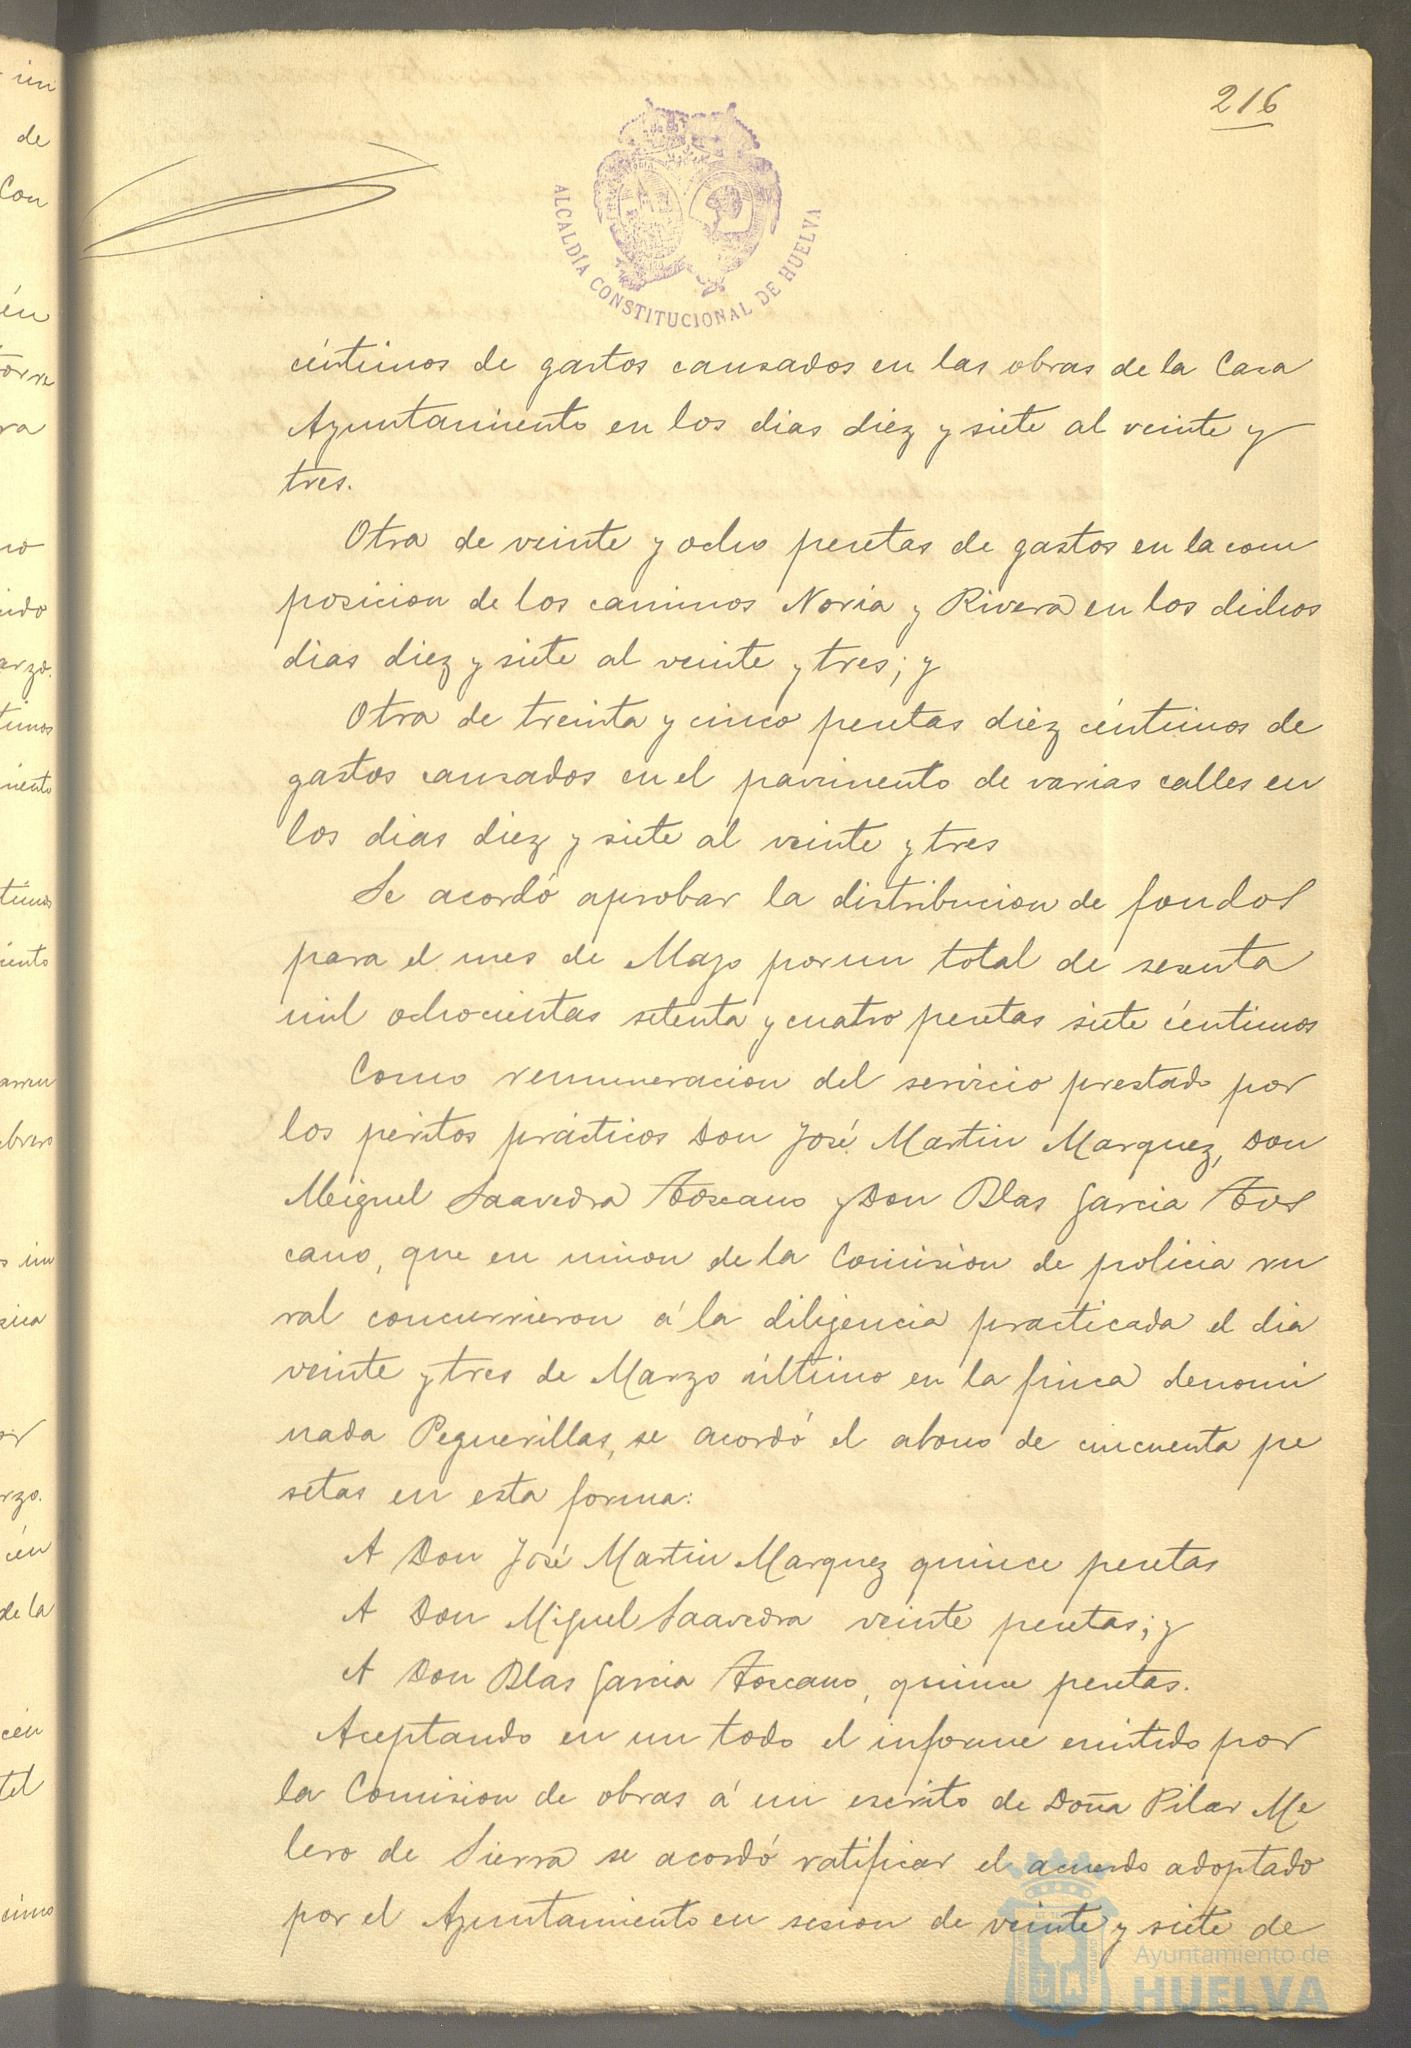 216
ALCALDÍA CONSTITUCIONAL DE HUELVA
céntimos de gastos causados en las obras de la Casa
Ayuntamiento en los dias diez y siete al veinte y
tres.
Otra de veinte y ocho pesetas de gastos en la com
posicion de los caminos Noria y Rivera en los dichos
dias diez y siete al veinte y tres; y
Otra de treinta y cinco pesetas diez céntimos de
gastos causados en el pavimento de varias calles en
los dias diez y siete al veinte y tres
Se acordó aprobar la distribucion de fondos
para el mes de Mayo por un total de sesenta
mil ochocientas setenta y cuatro pesetas siete céntimos
Como remuneracion del servicio prestado por
los peritos prácticos Don José Martin Marquez, Don
Miguel Saavedra Toscano y Don Blas Garcia Tos
cano, que en union de la Comision de policia ru
ral concurrieron á la diligencia practicada el dia
veinte y tres de Marzo último en la finca denomi
nada Peguerillas, se acordó el abono de cincuenta pe
setas en esta forma:
A Don José Martin Marquez quince pesetas
A Don Miguel Saavedra veinte pesetas; y
A Don Blas Garcia Toscano, quince pesetas.
Aceptando en un todo el informe emitido por
la Comision de obras á un escrito de Doña Pilar Me
lero de Sierra se acordó ratificar el acuerdo adoptado
por el Ayuntamiento en sesion de veinte y siete de
Ayuntamiento de
HUELVA